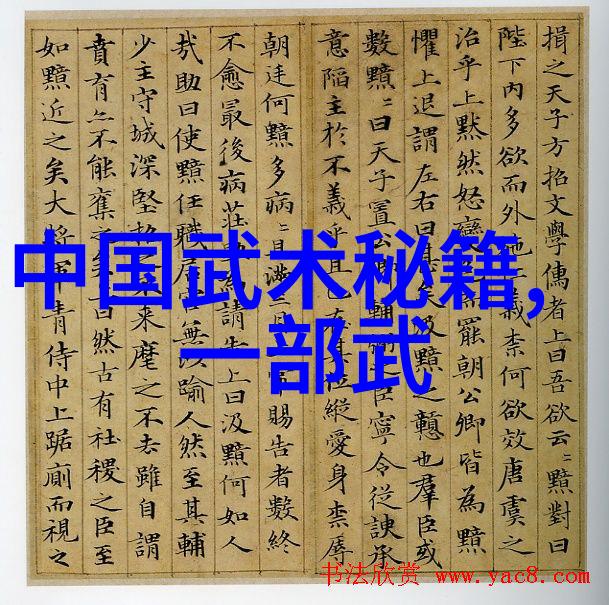 損之天子方招文學儒者上曰吾欲云〻黯對曰
陛下內多欲而外施仁義柰何欲效唐虞之
治乎上默然怒變罷朝公卿皆為黯
懼上退謂左右曰甚矣汲黯之戇也羣臣或
數黯〻曰天子置公卿輔之臣寧令從諛承
意陷主於不義乎且已在其位縱愛身柰辱
朝廷何黯多病〻且滿三月賜告者數終
不愈最後病莊助為請告上曰汲黯何如人
哉助曰使黯任職居官無以踰人然至其輔
少主守城深堅招之不來麾之不去雖自謂
賁育亦不能奪之矣上曰然古有社稷之臣至
如黯近之矣大將軍青侍中上踞廁而視之
中国武术秘籍,
一部武
书法欣赏 www.yac8.com